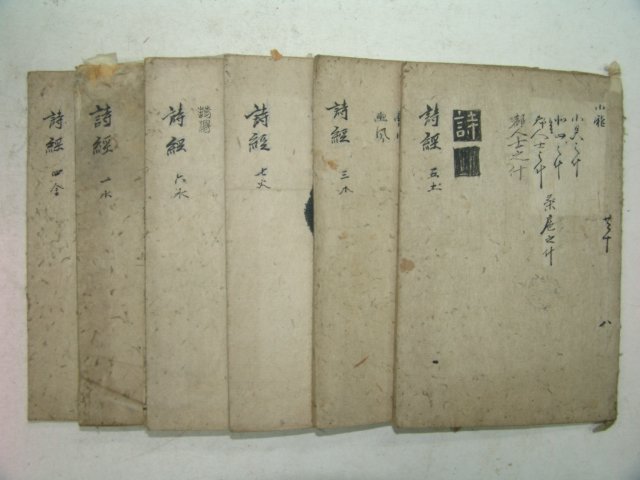 詩經 四金
詩經 一水
詩經 六水
詩經 七火
詩經 三木
豳風
詩經 五土
詩
小雅
小旻之什
北山之什
桑扈之什
都人士之什
八